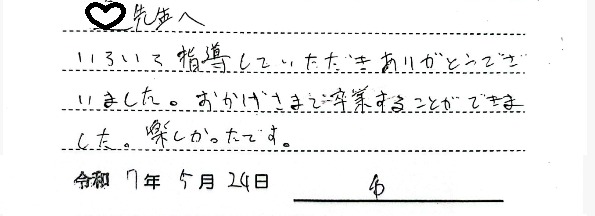 先生へ
いろいろ指導していただきありがとうござ
いました。おかげさまで卒業することができま
した。楽しかったです。
令和 7年 5月 24日